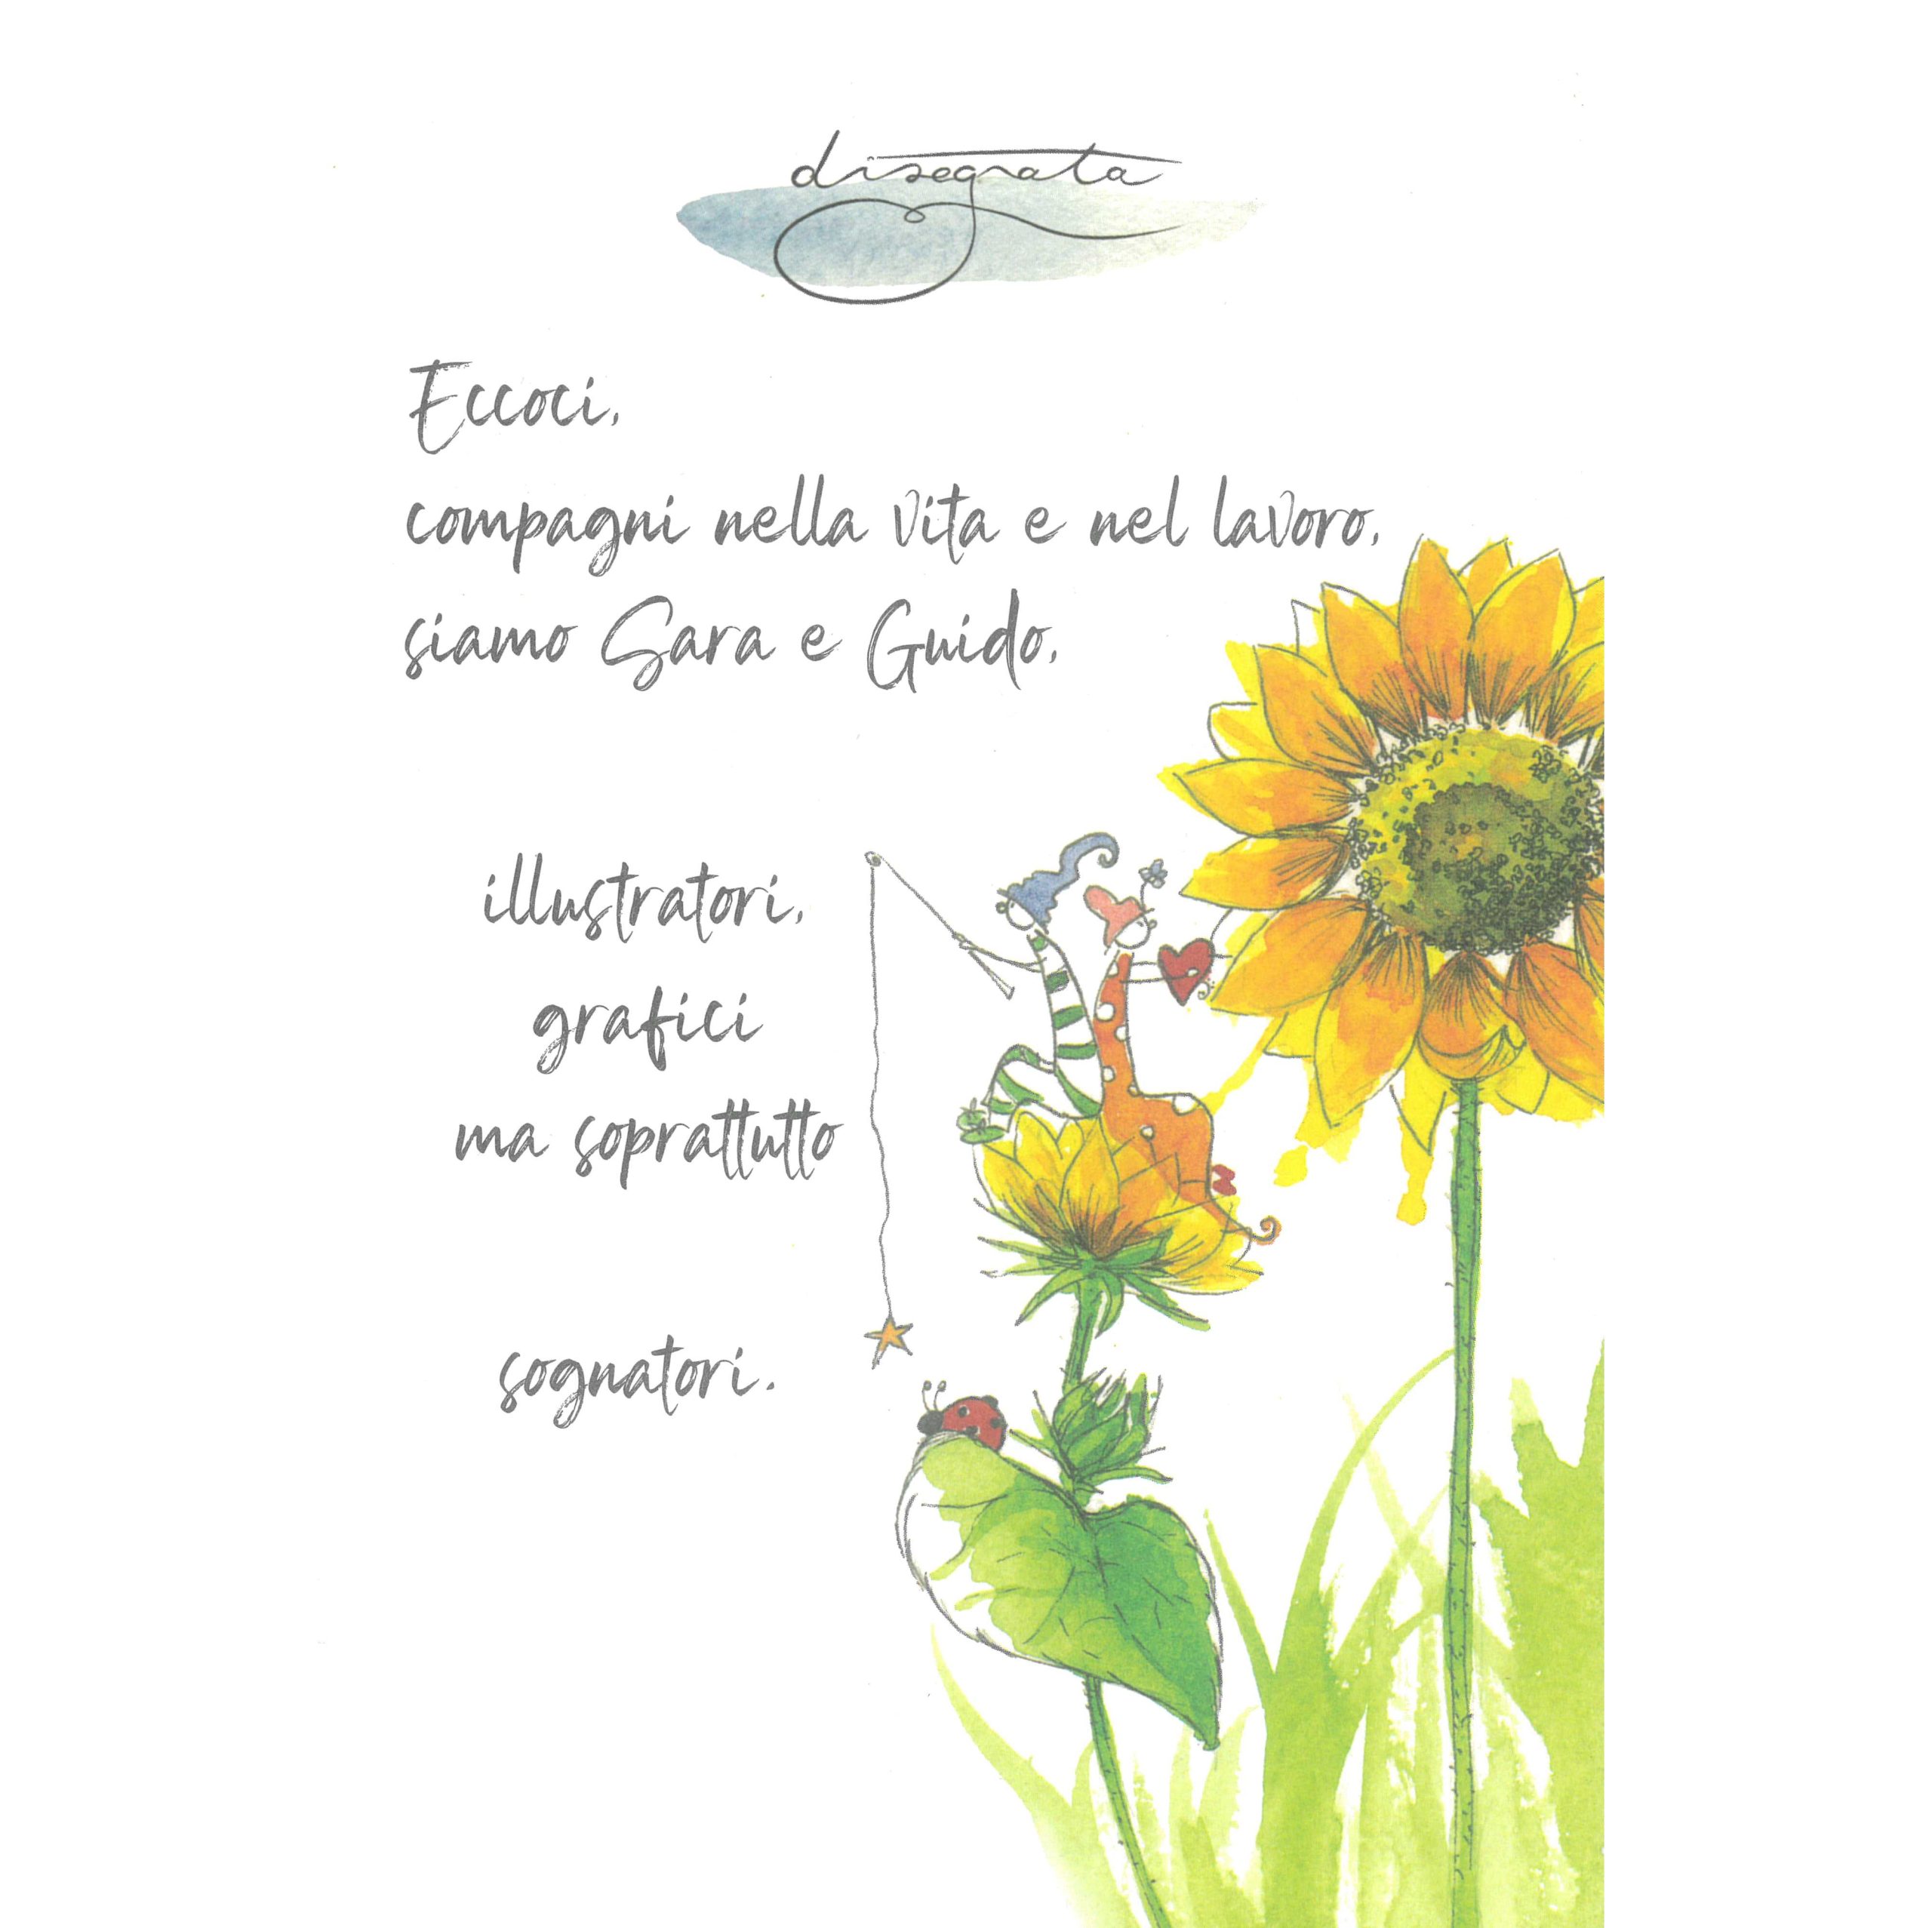 disegnata
Eccoci,
compagni nella vita e nel lavoro,
siamo Sara e Guido,
illustratori,
grafici
ma soprattutto
sognatori.